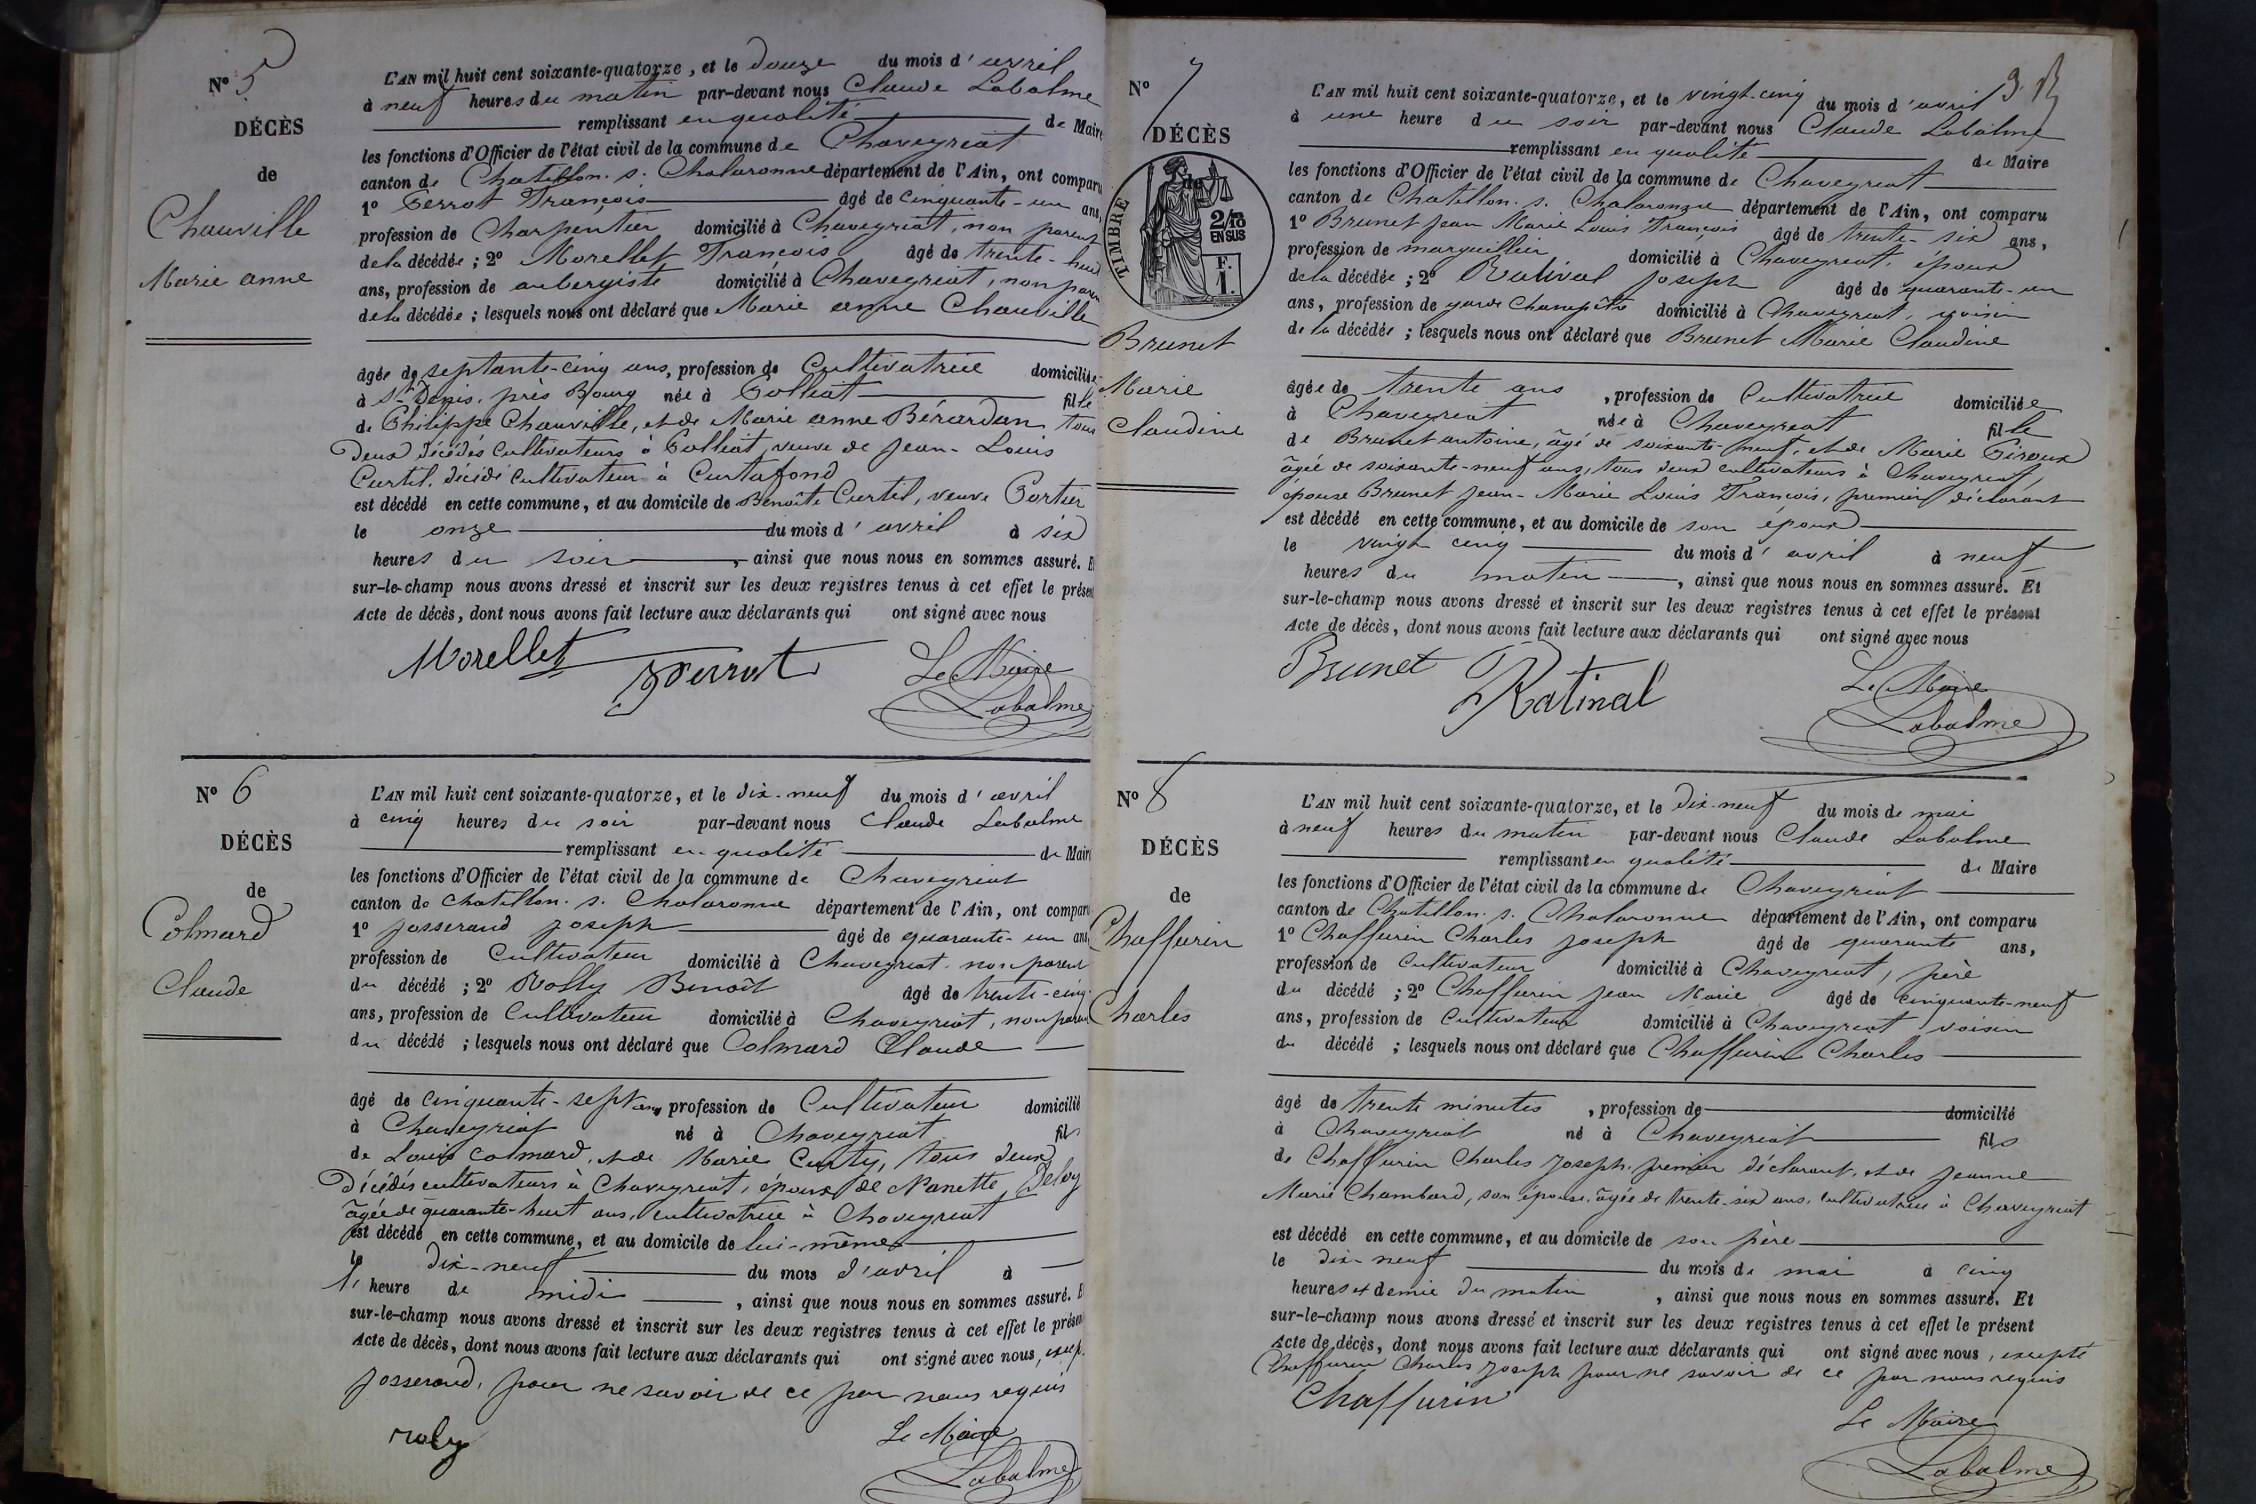 Nº 5
DÉCÈS
de
Chauville
Marie anne
L'AN mil huit cent soixante-quatorze, et le douze du mois d'avril
à neuf heures du matin par-devant nous Claude Labalme
remplissant en qualité de Maire
les fonctions d'Officier de l'état civil de la commune de Chaveyriat
canton de Chatillon. s. Chalaronne département de l'Ain, ont comparu
1º Perrot François âgé de cinquante-un ans,
profession de Charpentier domicilié à Chaveyriat, non parent
de la décédée ; 2º Morellet François âgé de trente-huit
ans, profession de aubergiste domicilié à Chaveyriat, non paren
de la décédée ; lesquels nous ont déclaré que Marie anne Chauville
âgée de septante-cinq ans, profession de Cultivatrice domiciliée
à St Denis, près Bourg née à Polliat fille
de Philippe Chauville, et de Marie anne Bérardan tous
deux décédés cultivateurs à Polliat, veuve de Jean-Louis
Curtil, décédé cultivateur à Curtafond
est décédé en cette commune, et au domicile de Benoîte Curtil, veuve Portier
le onze du mois d'avril à six
heures du soir, ainsi que nous nous en sommes assuré. E
sur-le-champ nous avons dressé et inscrit sur les deux registres tenus à cet effet le présen
Acte de décès, dont nous avons fait lecture aux déclarants qui ont signé avec nous
Morellet Perrot Le Maire
Labalme
Nº 6
DÉCÈS
de
Colmard
Claude
L'AN mil huit cent soixante-quatorze, et le dix-neuf du mois d'avril
à cinq heures du soir par-devant nous Claude Labalme
remplissant en qualité de Mair
les fonctions d'Officier de l'état civil de la commune de Chaveyriat
canton de Chatillon. s. Chalaronne département de l'Ain, ont compar
1º Josserand Joseph âgé de quarante-un ans
profession de Cultivateur domicilié à Chaveyriat, non parent
du décédé ; 2º Rolly Benoît âgé de trente-cinq
ans, profession de Cultivateur domicilié à Chaveyriat, non paren
du décédé ; lesquels nous ont déclaré que Colmard Claude
âgé de cinquante-sept ans, profession de Cultivateur domicilié
à Chaveyriat né à Chaveyriat fils
de Louis Colmard, et de Marie Curty, tous deux
décédés cultivateurs à Chaveyriat, époux de Nanette
âgée de quarante-huit ans, cultivatrice à Chaveyriat
est décédé en cette commune, et au domicile de lui-même
le dix-neuf du mois d'avril à
1' heure de midi, ainsi que nous nous en sommes assuré. E
sur-le-champ nous avons dressé et inscrit sur les deux registres tenus à cet effet le présen
Acte de décès, dont nous avons fait lecture aux déclarants qui ont signé avec nous, except
Josserand, pour ne savoir de ce par nous requis
roly Le Maire
Labalme
Nº 7
DÉCÈS
TIMBRE
2/10
EN SUS
F.
1.
Brunet
Marie
Claudine
L'AN mil huit cent soixante-quatorze, et le vingt-cinq du mois d'avril
à une heure du soir par-devant nous Claude Labalme
remplissant en qualité de Maire
les fonctions d'Officier de l'état civil de la commune de Chaveyriat
canton de Chatillon. s. Chalaronne département de l'Ain, ont comparu
1º Brunet Jean Marie Louis François âgé de trente-six ans,
profession de marguillier domicilié à Chaveyriat, époux
de la décédée ; 2º Ratinal Joseph âgé de quarante-un
ans, profession de garde Champêtre domicilié à Chaveyriat, voisin
de la décédée ; lesquels nous ont déclaré que Brunet Marie Claudine
âgée de trente ans, profession de Cultivatrice domiciliée
à Chaveyriat née à Chaveyriat fille
de Brunet antoine, âgé de soixante-neuf, et de Marie Giroux
âgée de soixante-neuf ans, tous deux cultivateurs à Chaveyriat,
épouse Brunet Jean-Marie Louis François, premier déclarant
est décédé en cette commune, et au domicile de son époux
le vingt cinq du mois d'avril à neuf
heures du matin, ainsi que nous nous en sommes assuré. Et
sur-le-champ nous avons dressé et inscrit sur les deux registres tenus à cet effet le présent
Acte de décès, dont nous avons fait lecture aux déclarants qui ont signé avec nous
Brunet Ratinal Le Maire
Labalme
Nº 8
DÉCÈS
de
Chaffurin
Charles
L'AN mil huit cent soixante-quatorze, et le dix-neuf du mois de mai
à neuf heures du matin par-devant nous Claude Labalme
remplissant en qualité de Maire
les fonctions d'Officier de l'état civil de la commune de Chaveyriat
canton de Chatillon. s. Chalaronne département de l'Ain, ont comparu
1º Chaffurin Charles Joseph âgé de quarante ans,
profession de Cultivateur domicilié à Chaveyriat, père
du décédé ; 2º Chaffurin Jean Marie âgé de cinquante-neuf
ans, profession de Cultivateur domicilié à Chaveyriat voisin
du décédé ; lesquels nous ont déclaré que Chaffurin Charles
âgé de trente minutes, profession de domicilié
à Chaveyriat né à Chaveyriat fils
de Chaffurin Charles Joseph, premier déclarant, et de Jeanne
Marie Chambard, son épouse, âgée de trente-six ans, cultivatrice à Chaveyriat
est décédé en cette commune, et au domicile de son père
le dix-neuf du mois de mai à cinq
heures et demie du matin, ainsi que nous nous en sommes assuré. Et
sur-le-champ nous avons dressé et inscrit sur les deux registres tenus à cet effet le présent
Acte de décès, dont nous avons fait lecture aux déclarants qui ont signé avec nous, excepté
Chaffurin Charles Joseph pour ne savoir de ce par nous requis
Chaffurin Le Maire
Labalme